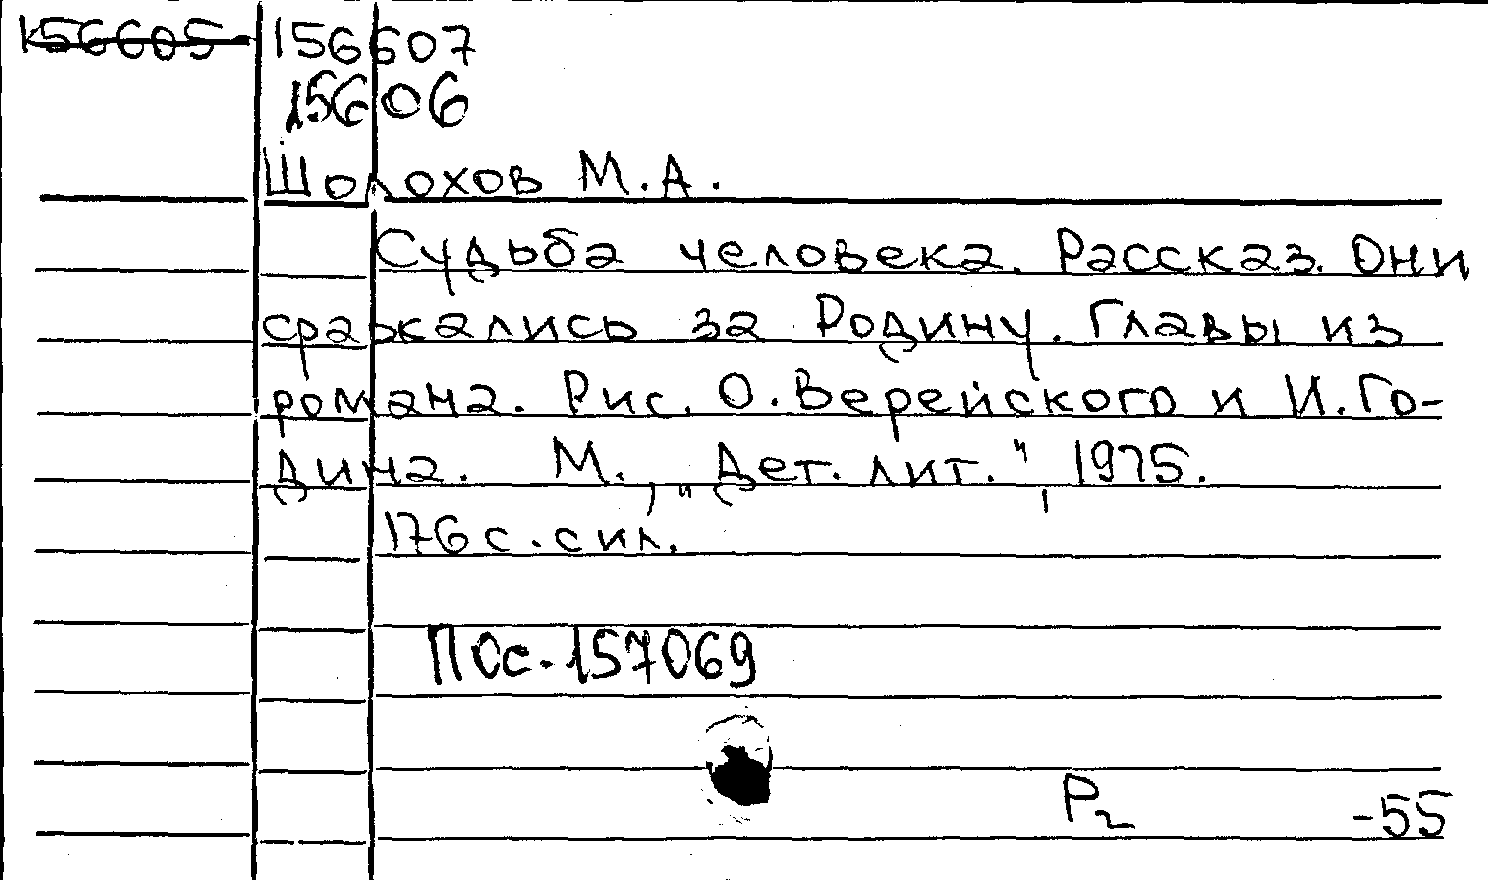 156605 156607
15606
Шолохов М.А.
Судьба человека. Рассказ. Они
сражались за Родину. Главы из
романа. Рис. О.Верейского и И.Го-
дина. М., „Дет. лит.", 1975.
176 с. с ил.
ПОс.157069
Р2 -55